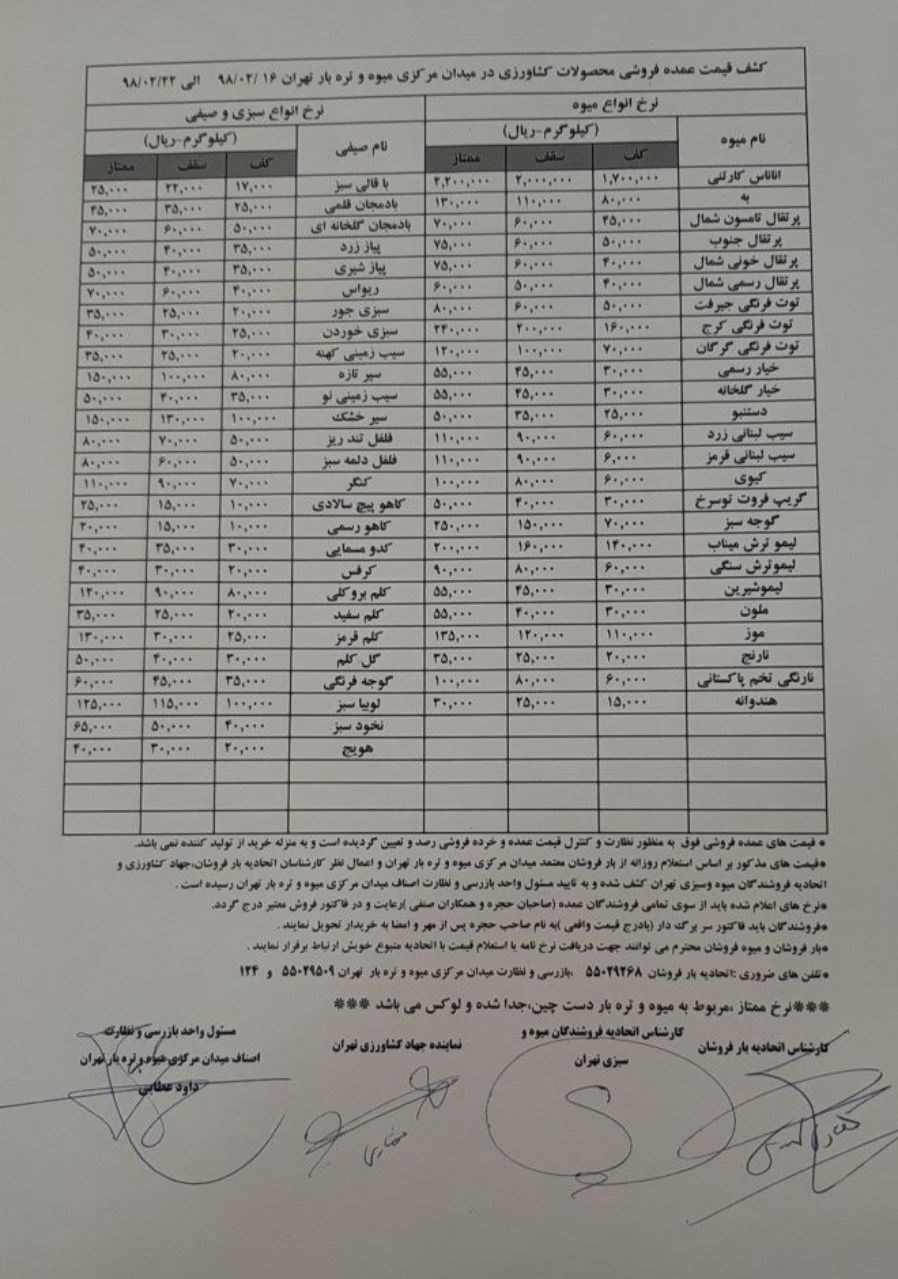 کشف قیمت عمده فروشی محصولات کشاورزی در میدان مرکزی میوه و تره بار تهران ۱۶ /۹۸/۰۲ الی ۹۸/۰۲/۲۲
نرخ انواع میوه نرخ انواع سبزی و صیفی
نام میوه (کیلوگرم-ریال) نام صیفی (کیلوگرم-ریال)
کف سقف ممتاز کف سقف ممتاز
اناناس کارتنی ۱,۷۰۰,۰۰۰ ۲,۰۰۰,۰۰۰ ۲,۲۰۰,۰۰۰ با قالی سبز ۱۷,۰۰۰ ۲۲,۰۰۰ ۲۵,۰۰۰
به ۸۰,۰۰۰ ۱۱۰,۰۰۰ ۱۳۰,۰۰۰ بادمجان قلمی ۲۵,۰۰۰ ۳۵,۰۰۰ ۴۵,۰۰۰
پرتقال تامسون شمال ۴۵,۰۰۰ ۶۰,۰۰۰ ۷۰,۰۰۰ بادمجان گلخانه ای ۵۰,۰۰۰ ۶۰,۰۰۰ ۷۰,۰۰۰
پرتقال جنوب ۵۰,۰۰۰ ۶۰,۰۰۰ ۷۵,۰۰۰ پیاز زرد ۳۵,۰۰۰ ۴۰,۰۰۰ ۵۰,۰۰۰
پرتقال خونی شمال ۴۰,۰۰۰ ۶۰,۰۰۰ ۷۵,۰۰۰ پیاز شیری ۳۵,۰۰۰ ۴۰,۰۰۰ ۵۰,۰۰۰
پرتقال رسمی شمال ۴۰,۰۰۰ ۵۰,۰۰۰ ۶۰,۰۰۰ ریواس ۴۰,۰۰۰ ۶۰,۰۰۰ ۷۰,۰۰۰
توت فرنگی جیرفت ۵۰,۰۰۰ ۶۰,۰۰۰ ۸۰,۰۰۰ سبزی جور ۲۰,۰۰۰ ۲۵,۰۰۰ ۳۵,۰۰۰
توت فرنگی کرج ۱۶۰,۰۰۰ ۲۰۰,۰۰۰ ۲۴۰,۰۰۰ سبزی خوردن ۲۵,۰۰۰ ۳۰,۰۰۰ ۴۰,۰۰۰
توت فرنگی گرگان ۷۰,۰۰۰ ۱۰۰,۰۰۰ ۱۲۰,۰۰۰ سیب زمینی کهنه ۲۰,۰۰۰ ۲۵,۰۰۰ ۳۵,۰۰۰
خیار رسمی ۳۰,۰۰۰ ۴۵,۰۰۰ ۵۵,۰۰۰ سیر تازه ۸۰,۰۰۰ ۱۰۰,۰۰۰ ۱۵۰,۰۰۰
خیار گلخانه ۳۰,۰۰۰ ۴۵,۰۰۰ ۵۵,۰۰۰ سیب زمینی نو ۳۵,۰۰۰ ۴۰,۰۰۰ ۵۰,۰۰۰
دستنبو ۲۵,۰۰۰ ۳۵,۰۰۰ ۵۰,۰۰۰ سیر خشک ۱۰۰,۰۰۰ ۱۳۰,۰۰۰ ۱۵۰,۰۰۰
سیب لبنانی زرد ۶۰,۰۰۰ ۹۰,۰۰۰ ۱۱۰,۰۰۰ فلفل تند ریز ۵۰,۰۰۰ ۷۰,۰۰۰ ۸۰,۰۰۰
سیب لبنانی قرمز ۶,۰۰۰ ۹۰,۰۰۰ ۱۱۰,۰۰۰ فلفل دلمه سبز ۵۰,۰۰۰ ۶۰,۰۰۰ ۸۰,۰۰۰
کیوی ۶۰,۰۰۰ ۸۰,۰۰۰ ۱۰۰,۰۰۰ کنگر ۷۰,۰۰۰ ۹۰,۰۰۰ ۱۱۰,۰۰۰
گریپ فروت توسرخ ۳۰,۰۰۰ ۴۰,۰۰۰ ۵۰,۰۰۰ کاهو پیچ سالادی ۱۰,۰۰۰ ۱۵,۰۰۰ ۲۵,۰۰۰
گوجه سبز ۷۰,۰۰۰ ۱۵۰,۰۰۰ ۲۵۰,۰۰۰ کاهو رسمی ۱۰,۰۰۰ ۱۵,۰۰۰ ۲۰,۰۰۰
لیمو ترش میناب ۱۴۰,۰۰۰ ۱۶۰,۰۰۰ ۲۰۰,۰۰۰ کدو مسمایی ۳۰,۰۰۰ ۳۵,۰۰۰ ۴۰,۰۰۰
لیموترش سنگی ۶۰,۰۰۰ ۸۰,۰۰۰ ۹۰,۰۰۰ کرفس ۲۰,۰۰۰ ۳۰,۰۰۰ ۴۰,۰۰۰
لیموشیرین ۳۰,۰۰۰ ۴۵,۰۰۰ ۵۵,۰۰۰ کلم بروکلی ۸۰,۰۰۰ ۹۰,۰۰۰ ۱۲۰,۰۰۰
ملون ۳۰,۰۰۰ ۴۰,۰۰۰ ۵۵,۰۰۰ کلم سفید ۲۰,۰۰۰ ۲۵,۰۰۰ ۳۵,۰۰۰
موز ۱۱۰,۰۰۰ ۱۲۰,۰۰۰ ۱۳۵,۰۰۰ کلم قرمز ۲۵,۰۰۰ ۳۰,۰۰۰ ۱۳۰,۰۰۰
نارنج ۲۰,۰۰۰ ۲۵,۰۰۰ ۳۵,۰۰۰ گل کلم ۳۰,۰۰۰ ۴۰,۰۰۰ ۵۰,۰۰۰
نارنگی تخم پاکستانی ۶۰,۰۰۰ ۸۰,۰۰۰ ۱۰۰,۰۰۰ گوجه فرنگی ۳۵,۰۰۰ ۴۵,۰۰۰ ۶۰,۰۰۰
هندوانه ۱۵,۰۰۰ ۲۵,۰۰۰ ۳۰,۰۰۰ لوبیا سبز ۱۰۰,۰۰۰ ۱۱۵,۰۰۰ ۱۲۵,۰۰۰
نخود سبز ۴۰,۰۰۰ ۵۰,۰۰۰ ۶۵,۰۰۰
هویج ۲۰,۰۰۰ ۳۰,۰۰۰ ۴۰,۰۰۰
* قیمت های عمده فروشی فوق به منظور نظارت و کنترل قیمت عمده و خرده فروشی رصد و تعیین گردیده است و به منزله خرید از تولید کننده نمی باشد.
*قیمت های مذکور بر اساس استعلام روزانه از بار فروشان معتمد میدان مرکزی میوه و تره بار تهران و اعمال نظر کارشناسان اتحادیه بار فروشان،جهاد کشاورزی و
اتحادیه فروشندگان میوه وسبزی تهران کشف شده و به تایید مسئول واحد بازرسی و نظارت اصناف میدان مرکزی میوه و تره بار تهران رسیده است .
*نرخ های اعلام شده باید از سوی تمامی فروشندگان عمده (صاحبان حجره و همکاران صنفی )رعایت و در فاکتور فروش معتبر درج گردد.
*فروشندگان باید فاکتور سر برگ دار (بادرج قیمت واقعی )به نام صاحب حجره پس از مهر و امضا به خریدار تحویل نمایند .
*بار فروشان و میوه فروشان محترم می توانند جهت دریافت نرخ نامه یا استعلام قیمت با اتحادیه متبوع خویش ارتباط برقرار نمایند .
*تلفن های ضروری :اتحادیه بار فروشان ۵۵۰۲۹۲۶۸ ،بازرسی و نظارت میدان مرکزی میوه و تره بار تهران ۵۵۰۲۹۵۰۹ و ۱۲۴
***نرخ ممتاز ،مربوط به میوه و تره بار دست چین،جدا شده و لوکس می باشد ***
کارشناس اتحادیه بار فروشان
کارشناس اتحادیه فروشندگان میوه و
سبزی تهران
نماینده جهاد کشاورزی تهران
مسئول واحد بازرسی و نظارت
اصناف میدان مرکزی میوه و تره بار تهران
داود عطایی